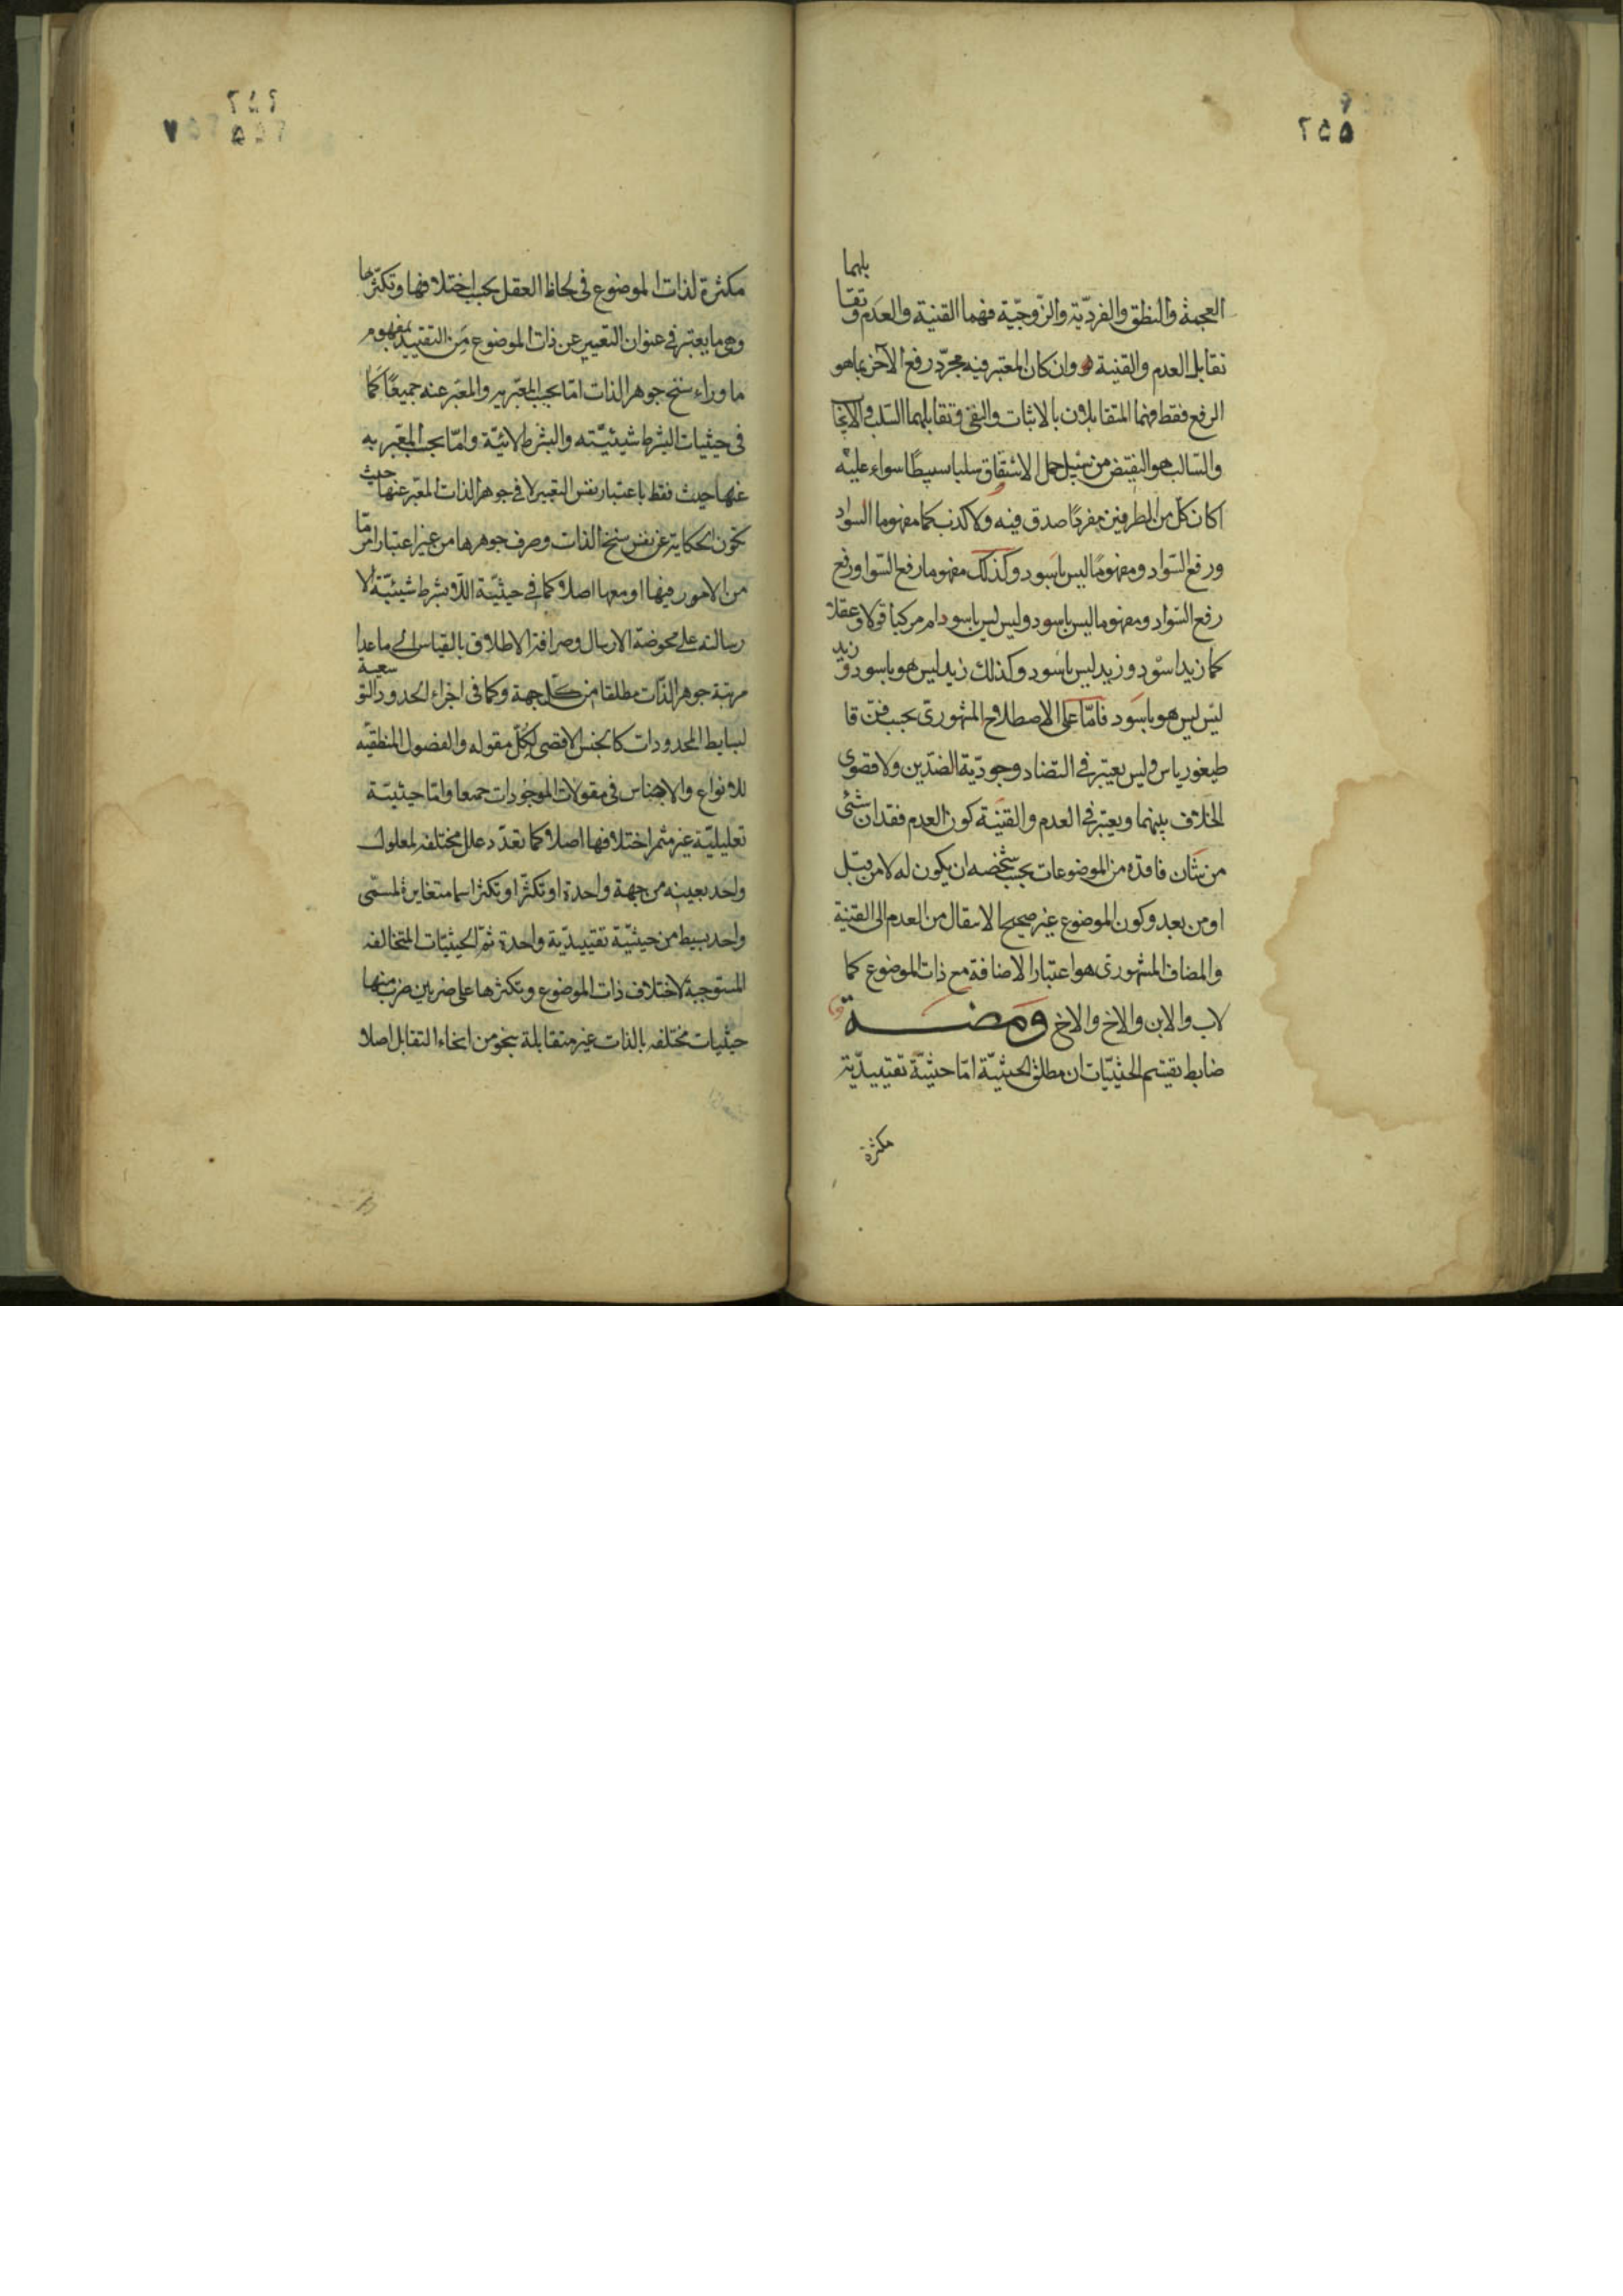 العجمة والنطق والفردّية والزّوجّية فهما القنية والعدم وتقا
بلهما
تقابل العدم والقنية وان كان المعتبر فيه مجرّد رفع الآخر بما هو
الرفع فقط فهما المتقابلان بالاثبات والنفى وتقابلهما السّلب والايجا
والسّالب هو النقيض من سبيل حمل الاشتقاق سلبا بسيطًا سواء عليه
اكان كلّ من الطرفين مفردًا صدق فيه ولا كذب كما مفهوما السواد
ورفع السّواد ومفهوما ليس باسود وكذلك مفهوما رفع السّواد ورفع
رفع السّواد ومفهوما ليس باسود وليس ليس باسود ام مركبا قولا وعقلا
كما زيد اسود وزيد ليس باسود وكذلك زيد ليس هو باسود وزيد
ليس ليس هو باسود فامّا على الاصطلاح المشهورى بحسب فنّ قا
طيغورياس وليس يعتبر فى التضاد وجودّية الضدّين ولا قصوى
الخلاف بينهما ويعتبر فى العدم والقنية كون العدم فقدان شئ
من شان فاقده من الموضوعات بحسب شخصه ان يكون له لا من قبل
او من بعد وكون الموضوع غير صحيح الانتقال من العدم الى القنية
والمضاف المشهورى هو اعتبار الاضافة مع ذات الموضوع كما
لاب والابن والاخ والاخ ومضــة
ضابط تقسيم الحيثيّات ان مطلق الحيثيّة امّا حيثيّة تقييديّة
مكثرة
مكثرة لذات الموضوع فى لحاظ العقل بحسب اختلافها وتكثّرها
وهى ما يعتبر فى عنوان التعبير عن ذات الموضوع من التقييد بمفهوم
ما وراء سنخ جوهر الذات امّا بحسب المعبّر به والمعبّر عنه جميعًا كما
فى حيثيات البشرط شيئيّته والبشرط لائيّة وامّا بحسب المعبّر به
عنها حيث فقط باعتبار نفس التعبير لا فى جوهر الذات المعبّر عنها حيث
تكون الحكاية عن نفس سنخ الذات وصرف جوهرها من غير اعتبار امر ما
من الامور فيها او معها اصلا كما فى حيثيّة اللّا بشرط شيئيّة لا
رسالته على محوضة الارسال وصرافة الاطلاق بالقياس الى ما عدا
مرتبة جوهر الذات مطلقا من كل جهة وكما فى اجزاء الحدود التو
سعية
لبسايط المحدودات كالجنس الاقصى لكلّ مقوله والفصول المنطقيّه
للانواع والاجناس فى مقولات الموجودات جميعا وامّا حيثيّة
تعليليّة غير مثمر اختلافها اصلا كما تعدّد علل مختلفه لمعلول
واحد بعينه من جهة واحدة او تكثّر اسما متغايرة لمسمّى
واحد بسيط من حيثيّة تقييديّة واحدة ثمّ الحيثيّات المتخالفه
المستوجبة لاختلاف ذات الموضوع وتكثرها على ضربين ضرب منها
حيثيات مختلفه بالذات غير متقابلة بنحو من انحاء التقابل اصلا